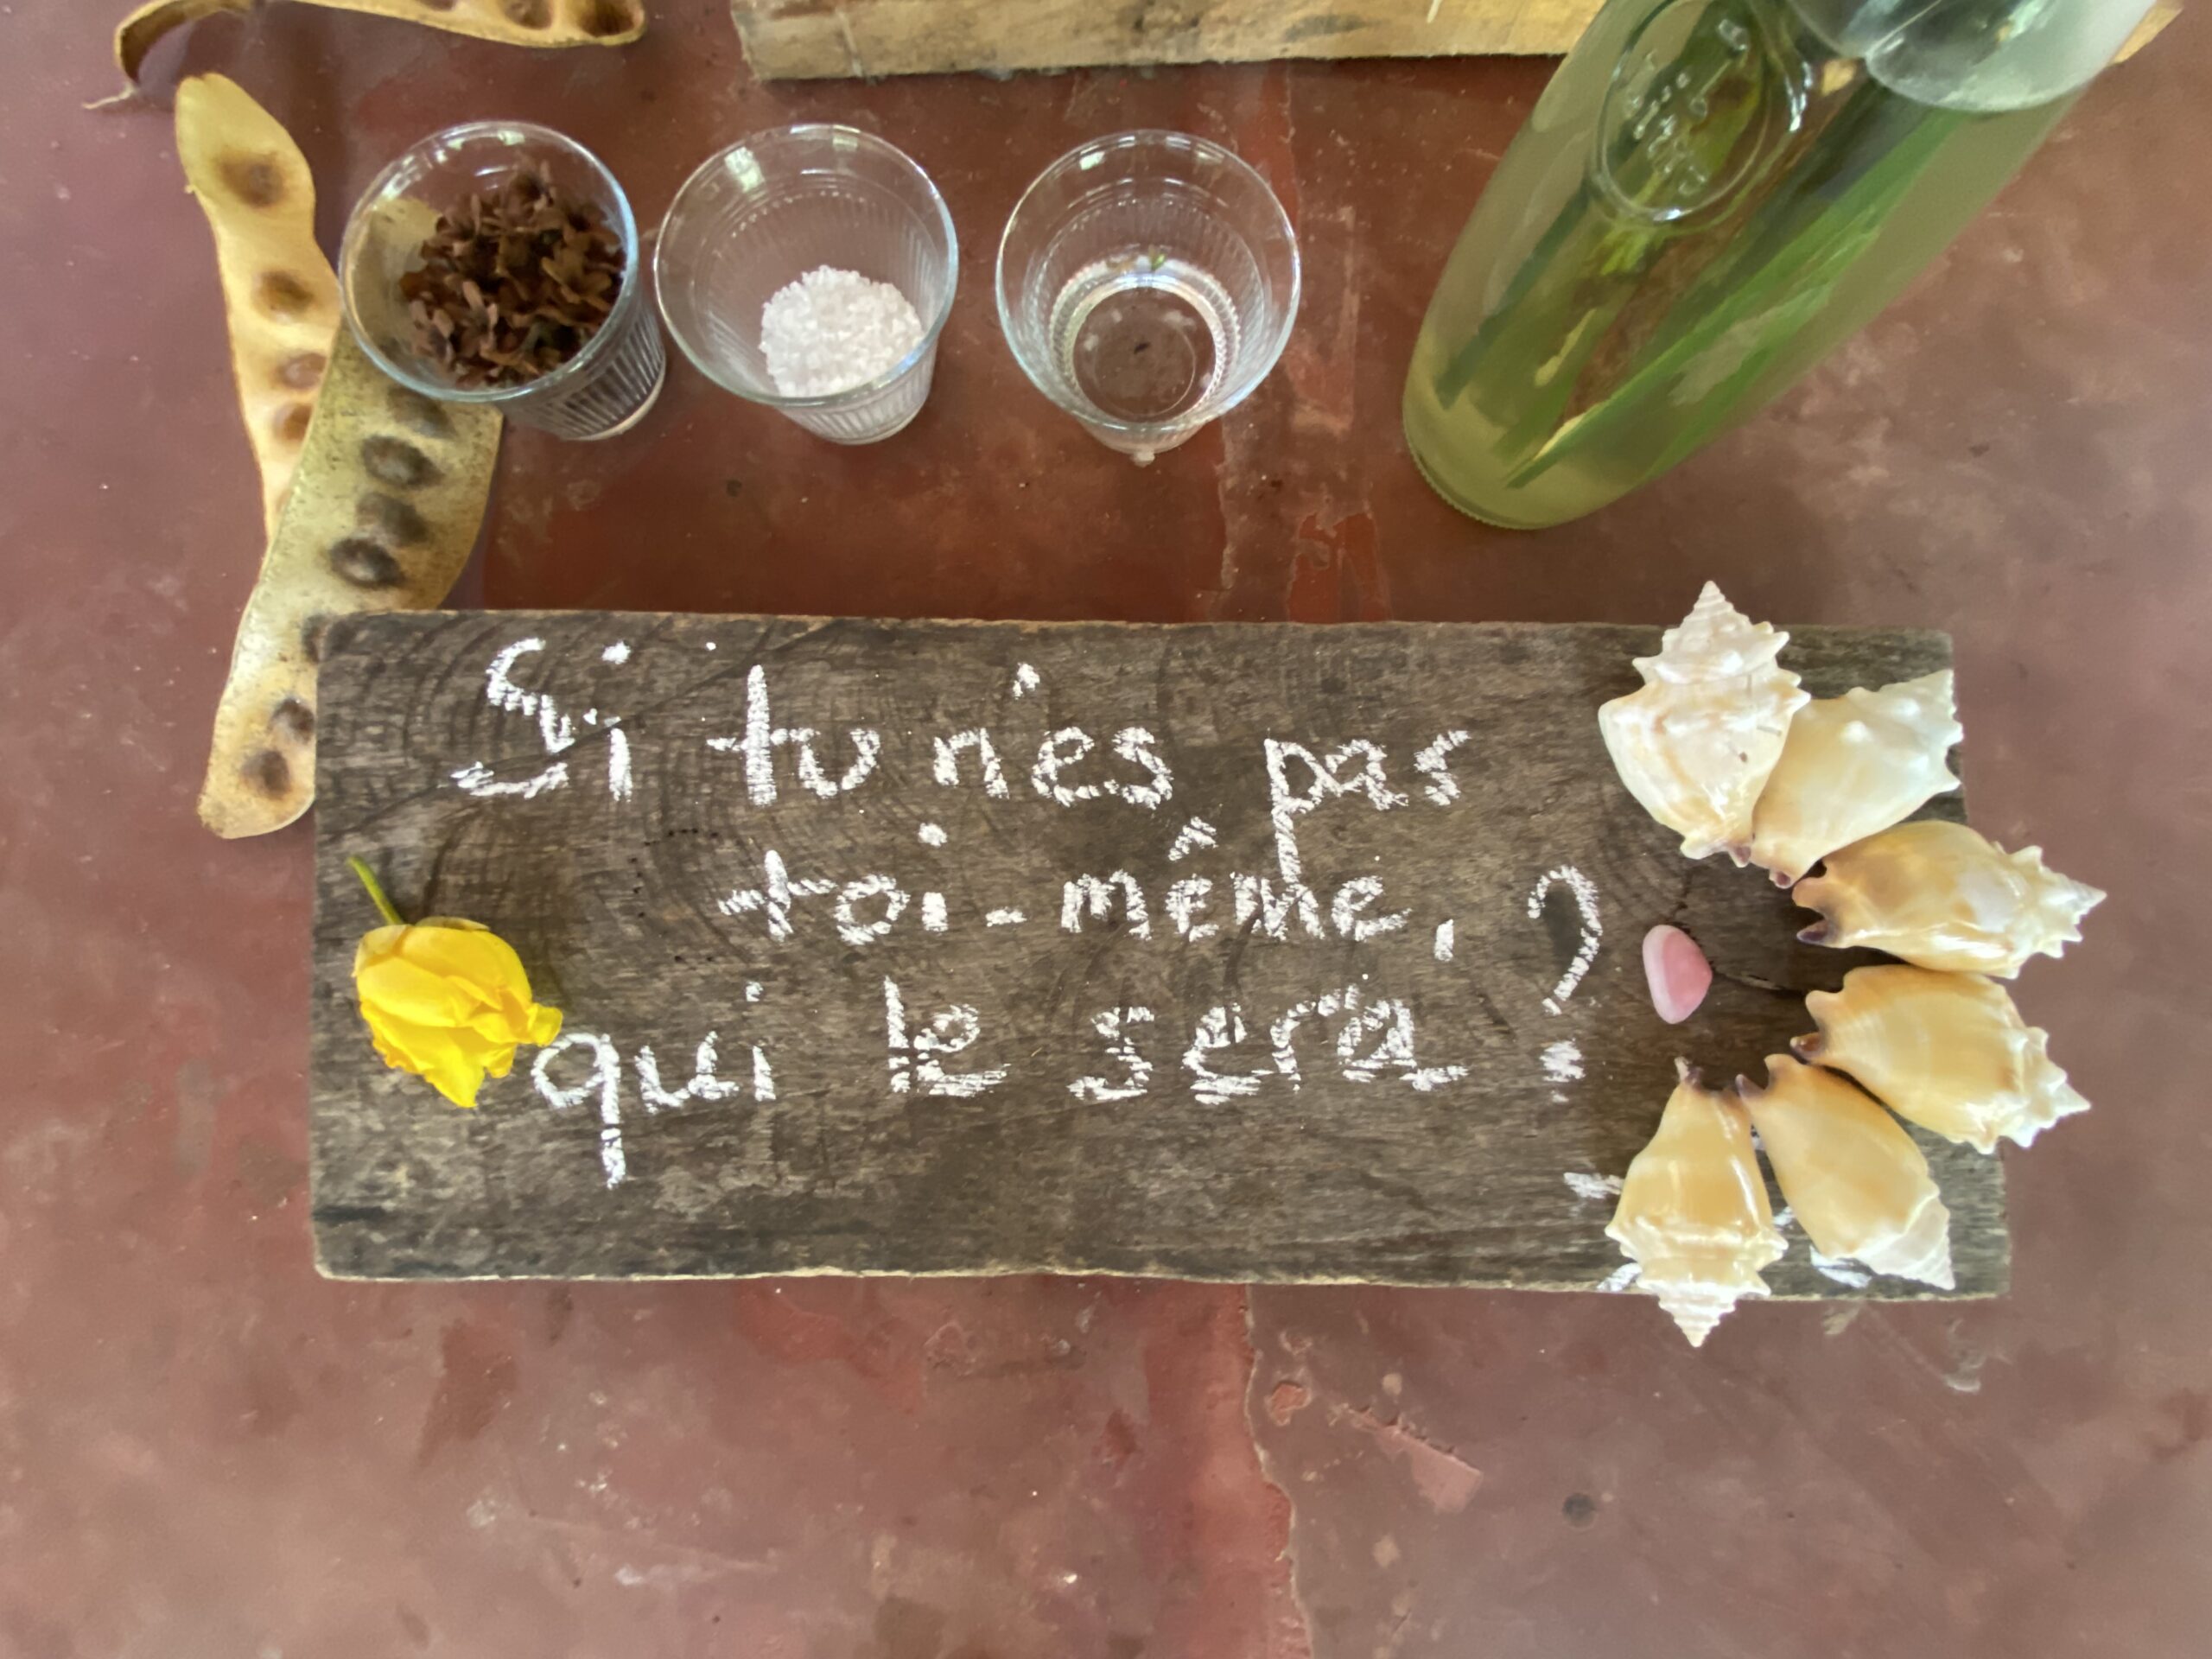 Si tu n'es pas
toi-même,
qui le sera ?